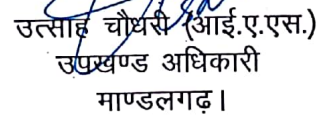 उत्साह चौधरी (आई.ए.एस.)
उपखण्ड अधिकारी
माण्डलगढ़।